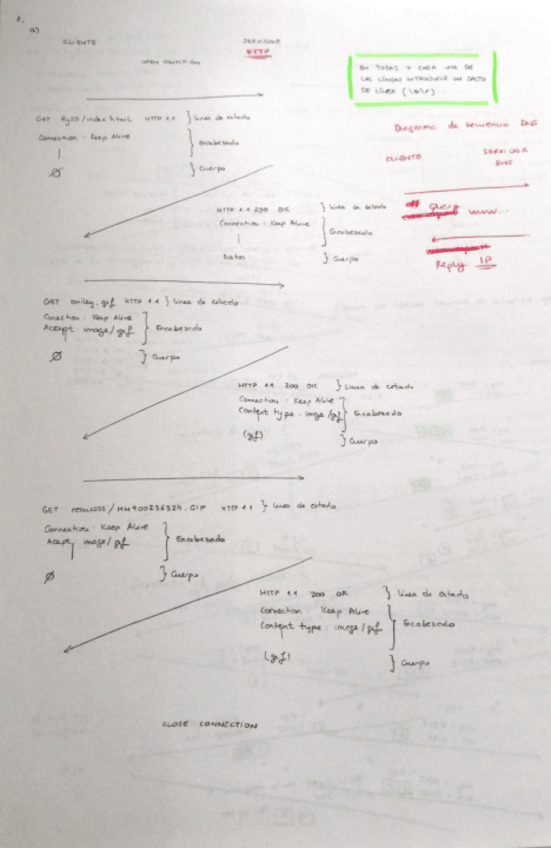 1.
a)
CLIENTE
SERVIDOR
HTTP
OPEN CONNECTION
EN TODAS Y CADA UNA DE
LAS LÍNEAS INTRODUCIR UN SALTO
DE LÍNEA
Diagrama de secuencia DNS
CLIENTE
SERVIDOR
DNS
Query www...
Reply IP
GET /index.html HTTP 1.1 } Línea de estado
Connection: Keep Alive } Encabezado
Ø } Cuerpo
HTTP 1.1 200 OK } Línea de estado
Connection: Keep Alive } Encabezado
Datos } Cuerpo
GET smiley.gif HTTP 1.1 } Línea de estado
Conection: Keep Alive
Accept: image/gif } Encabezado
Ø } Cuerpo
HTTP 1.1. 200 OK } Línea de estado
Connection: Keep Alive
Content type: image/gif } Encabezado
(gif) } Cuerpo
GET recursos/MM900236324.GIF HTTP 1.1 } Línea de estado
Connection: Keep Alive
Acept: image/gif } Encabezado
Ø } Cuerpo
HTTP 1.1 200 OK } Línea de estado
Connection Keep Alive
Content type: image/gif } Encabezado
(gif) } Cuerpo
CLOSE CONNECTION